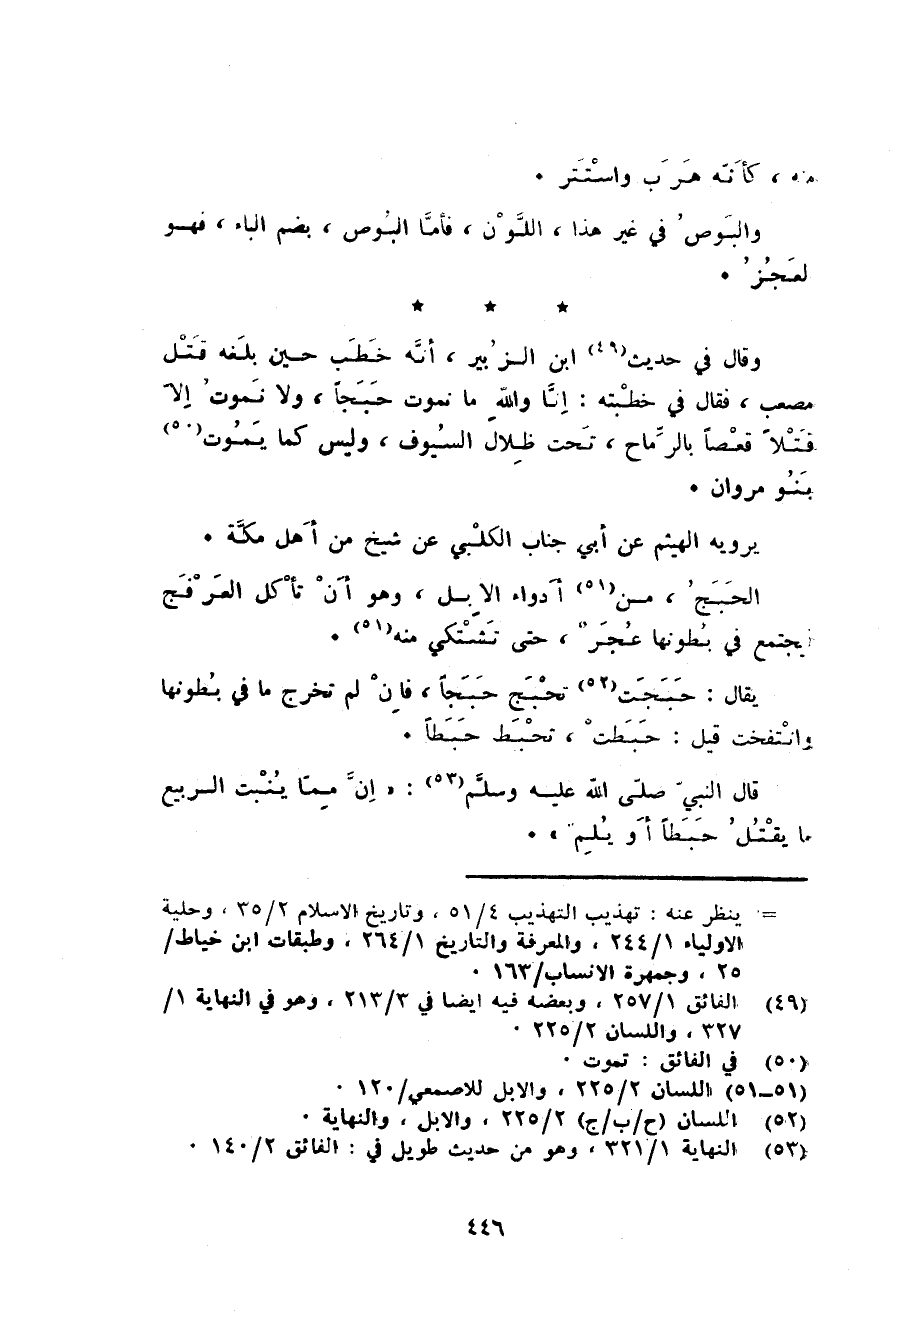 منه ، كأنَّه هَرَب واسْتَتَر ٠
والبَوصُ في غير هذا ، اللَّوْن ، فأمَّا البُوص ، بضم الباء ، فهـو
لعَجُزُ ٠
★ ★ ★
وقال في حديث(٤٩) ابن الـزُبير ، أنَّه خَطَب حـين بلَغه قَتْل
مصعب ، فقال في خطْبته : إنَّا واللهِ ما نموت حَبَجاً ، ولا نَموتُ إلاّ
قَتْلاً قعْصاً بالرِّماح ، تَحت ظِلال السُيوف ، وليس كما يَمُوت(٥٠)
بَنُو مروان ٠
يرويه الهيثم عن أبي جناب الكلْبي عن شيخ من أَهل مكَّة ٠
الحَبَجُ ، مـن(٥١) أَدواء الإبـل ، وهو أَنْ تأْكل العَرْفَج
يجتمع في بُطونها عُجَرٌ ، حتى تَشْتكي منه(٥١) ٠
يقال : حَبَجَت(٥٢) تحْبَج حَبَجاً ، فإنْ لم تخرج ما في بُطونها
وانْتفخت قيل : حَبَطتْ ، تحْبَط حَبَطاً ٠
قال النبيّ صلّى الله عليـه وسلَّم(٥٣) : « إنَّ مِمّا يُنْبت الـربيع
ما يقْتُلُ حَبَطاً أَو يُلِمّ » ٠
= ينظر عنه : تهذيب التهذيب ٥١/٤ ، وتاريخ الاسلام ٣٥/٢ ، وحلية
الاولياء ٢٤٤/١ ، والمعرفة والتاريخ ٢٦٤/١ ، وطبقات ابن خياط/
٢٥ ، وجمهرة الانساب/١٦٣ ٠
(٤٩) الفائق ٢٥٧/١ ، وبعضه فيه ايضا في ٢١٣/٣ ، وهو في النهاية ١/
٣٢٧ ، واللسان ٢٢٥/٢ ٠
(٥٠) في الفائق : تموت ٠
(٥١ـ٥١) اللسان ٢٢٥/٢ ، والابل للاصمعي/١٢٠ ٠
(٥٢) اللسان (ح/ب/ج) ٢٢٥/٢ ، والابل ، والنهاية ٠
(٥٣) النهاية ٣٢١/١ ، وهو من حديث طويل في : الفائق ١٤٠/٢ ٠
٤٤٦